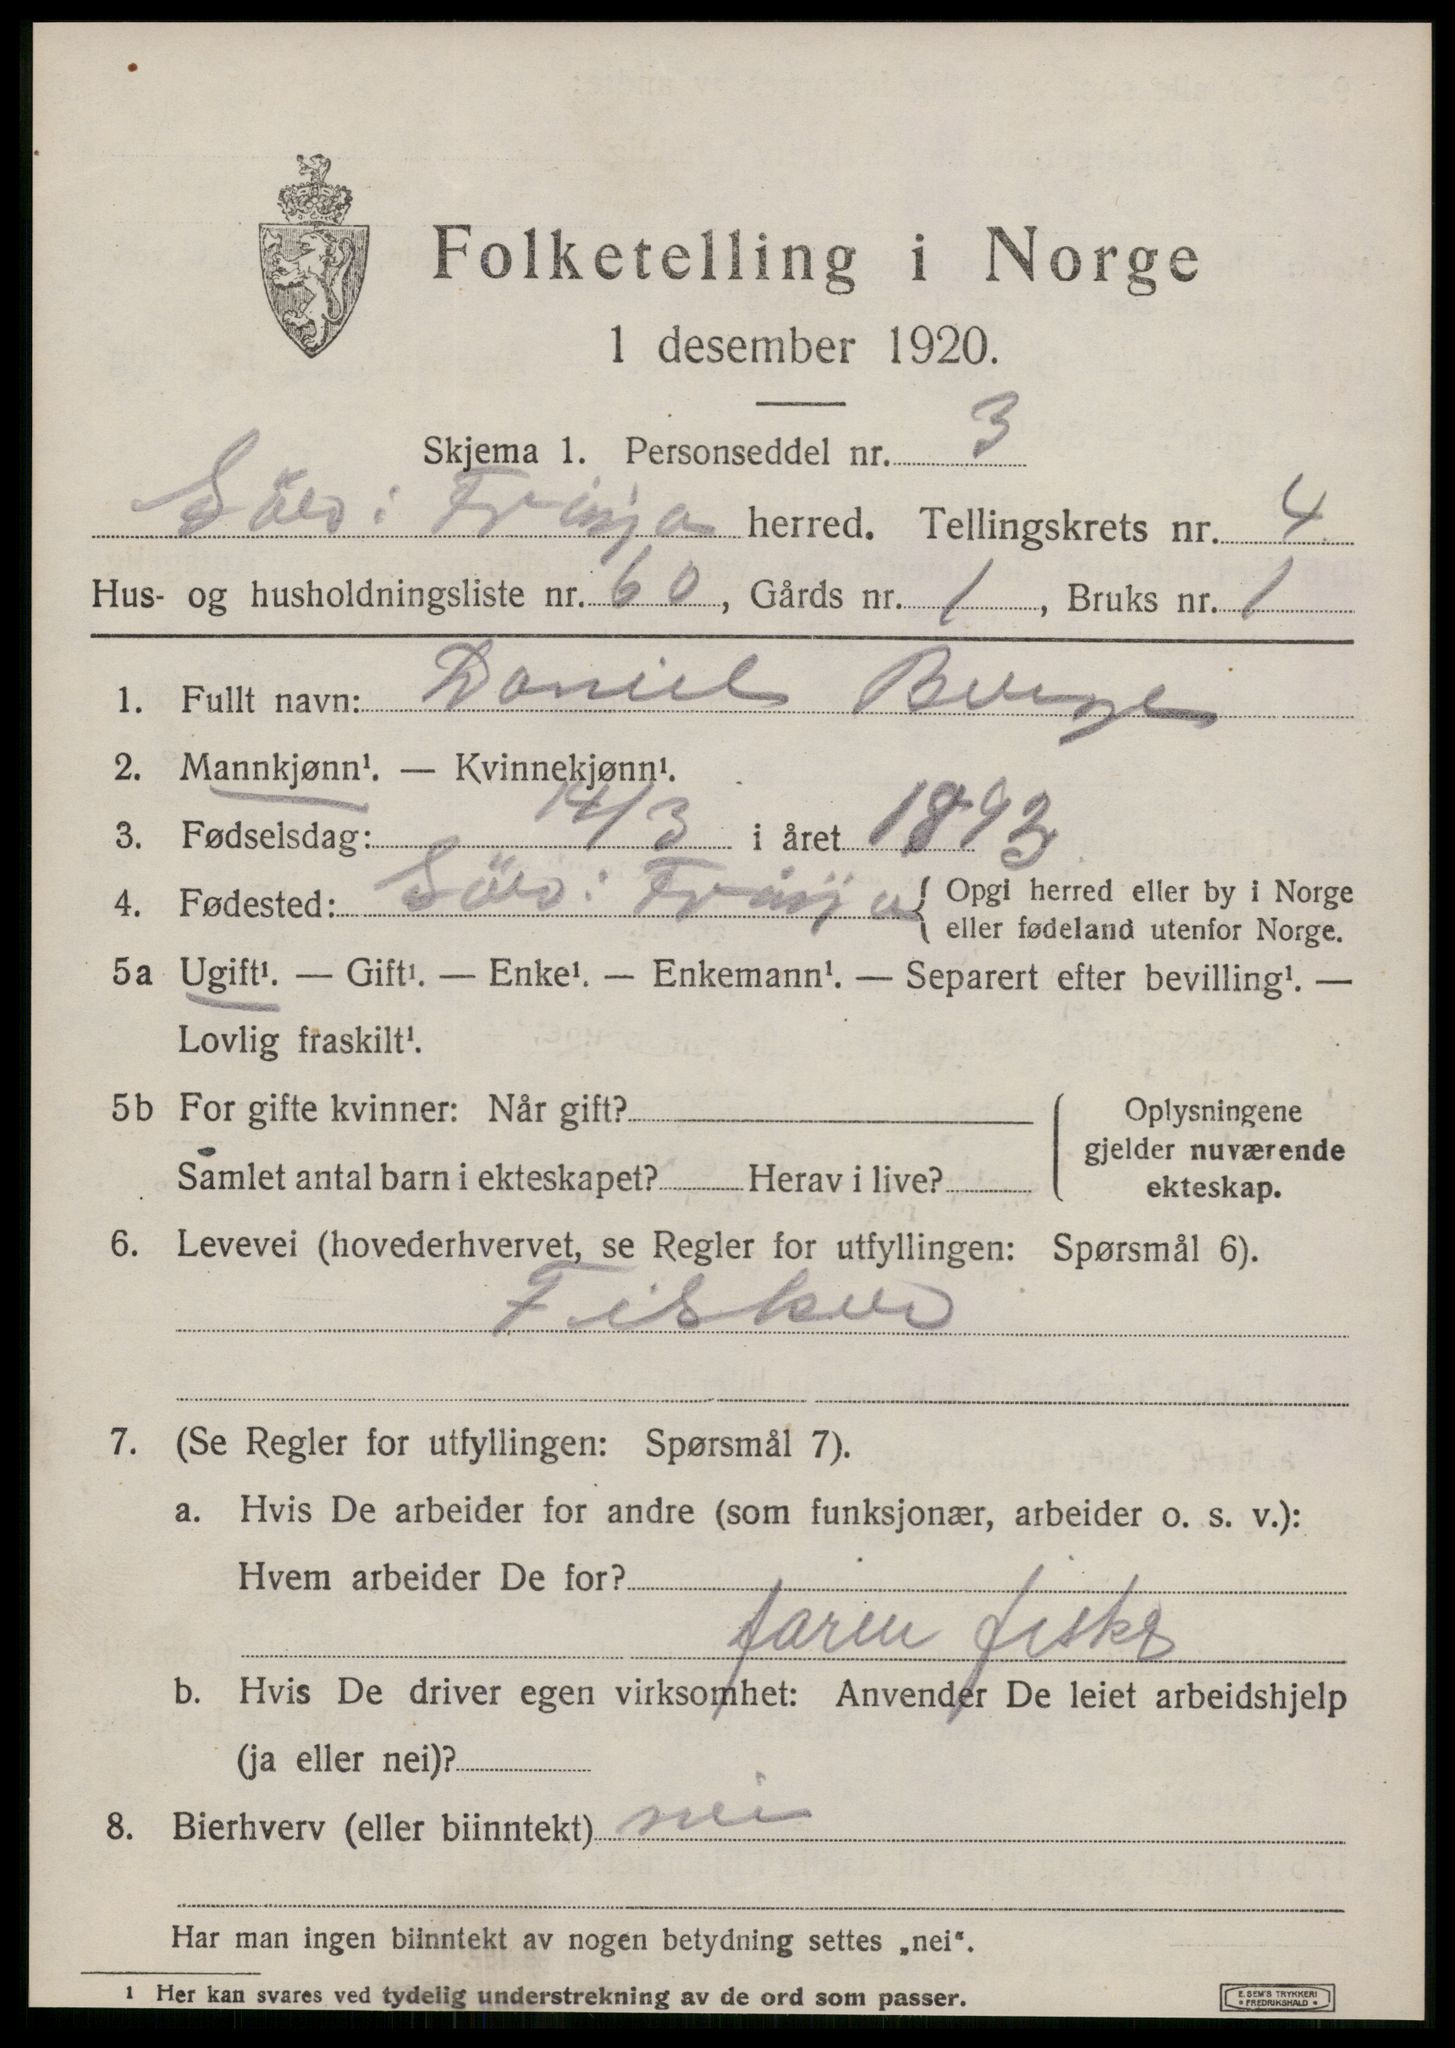 Folketelling i Norge
1 desember 1920.
Skjema 1. Personseddel nr. 3
herred. Tellingskrets nr. 4
Hus- og husholdningsliste nr. 60, Gårds nr. 1, Bruks nr. 1
1. Fullt navn: Daniel
2. Mannkjønn¹. — Kvinnekjønn¹.
3. Fødselsdag: 14/3 i året 1893
4. Fødested: { Opgi herred eller by i Norge
eller fødeland utenfor Norge.
5a Ugift¹. — Gift¹. — Enke¹. — Enkemann¹. — Separert efter bevilling¹. —
Lovlig fraskilt¹.
5b For gifte kvinner: Når gift?
Samlet antal barn i ekteskapet? Herav i live?
Oplysningene
gjelder nuværende
ekteskap.
6. Levevei (hovederhvervet, se Regler for utfyllingen: Spørsmål 6).
Fisker
7. (Se Regler for utfyllingen: Spørsmål 7).
a. Hvis De arbeider for andre (som funksjonær, arbeider o. s. v.):
Hvem arbeider De for?
faren fiske
b. Hvis De driver egen virksomhet: Anvender De leiet arbeidshjelp
(ja eller nei)?
8. Bierhverv (eller biinntekt) nei
Har man ingen biinntekt av nogen betydning settes „nei“.
1 Her kan svares ved tydelig understrekning av de ord som passer.
E. SEM'S TRYKKERI
• FREDRIKSHALD •